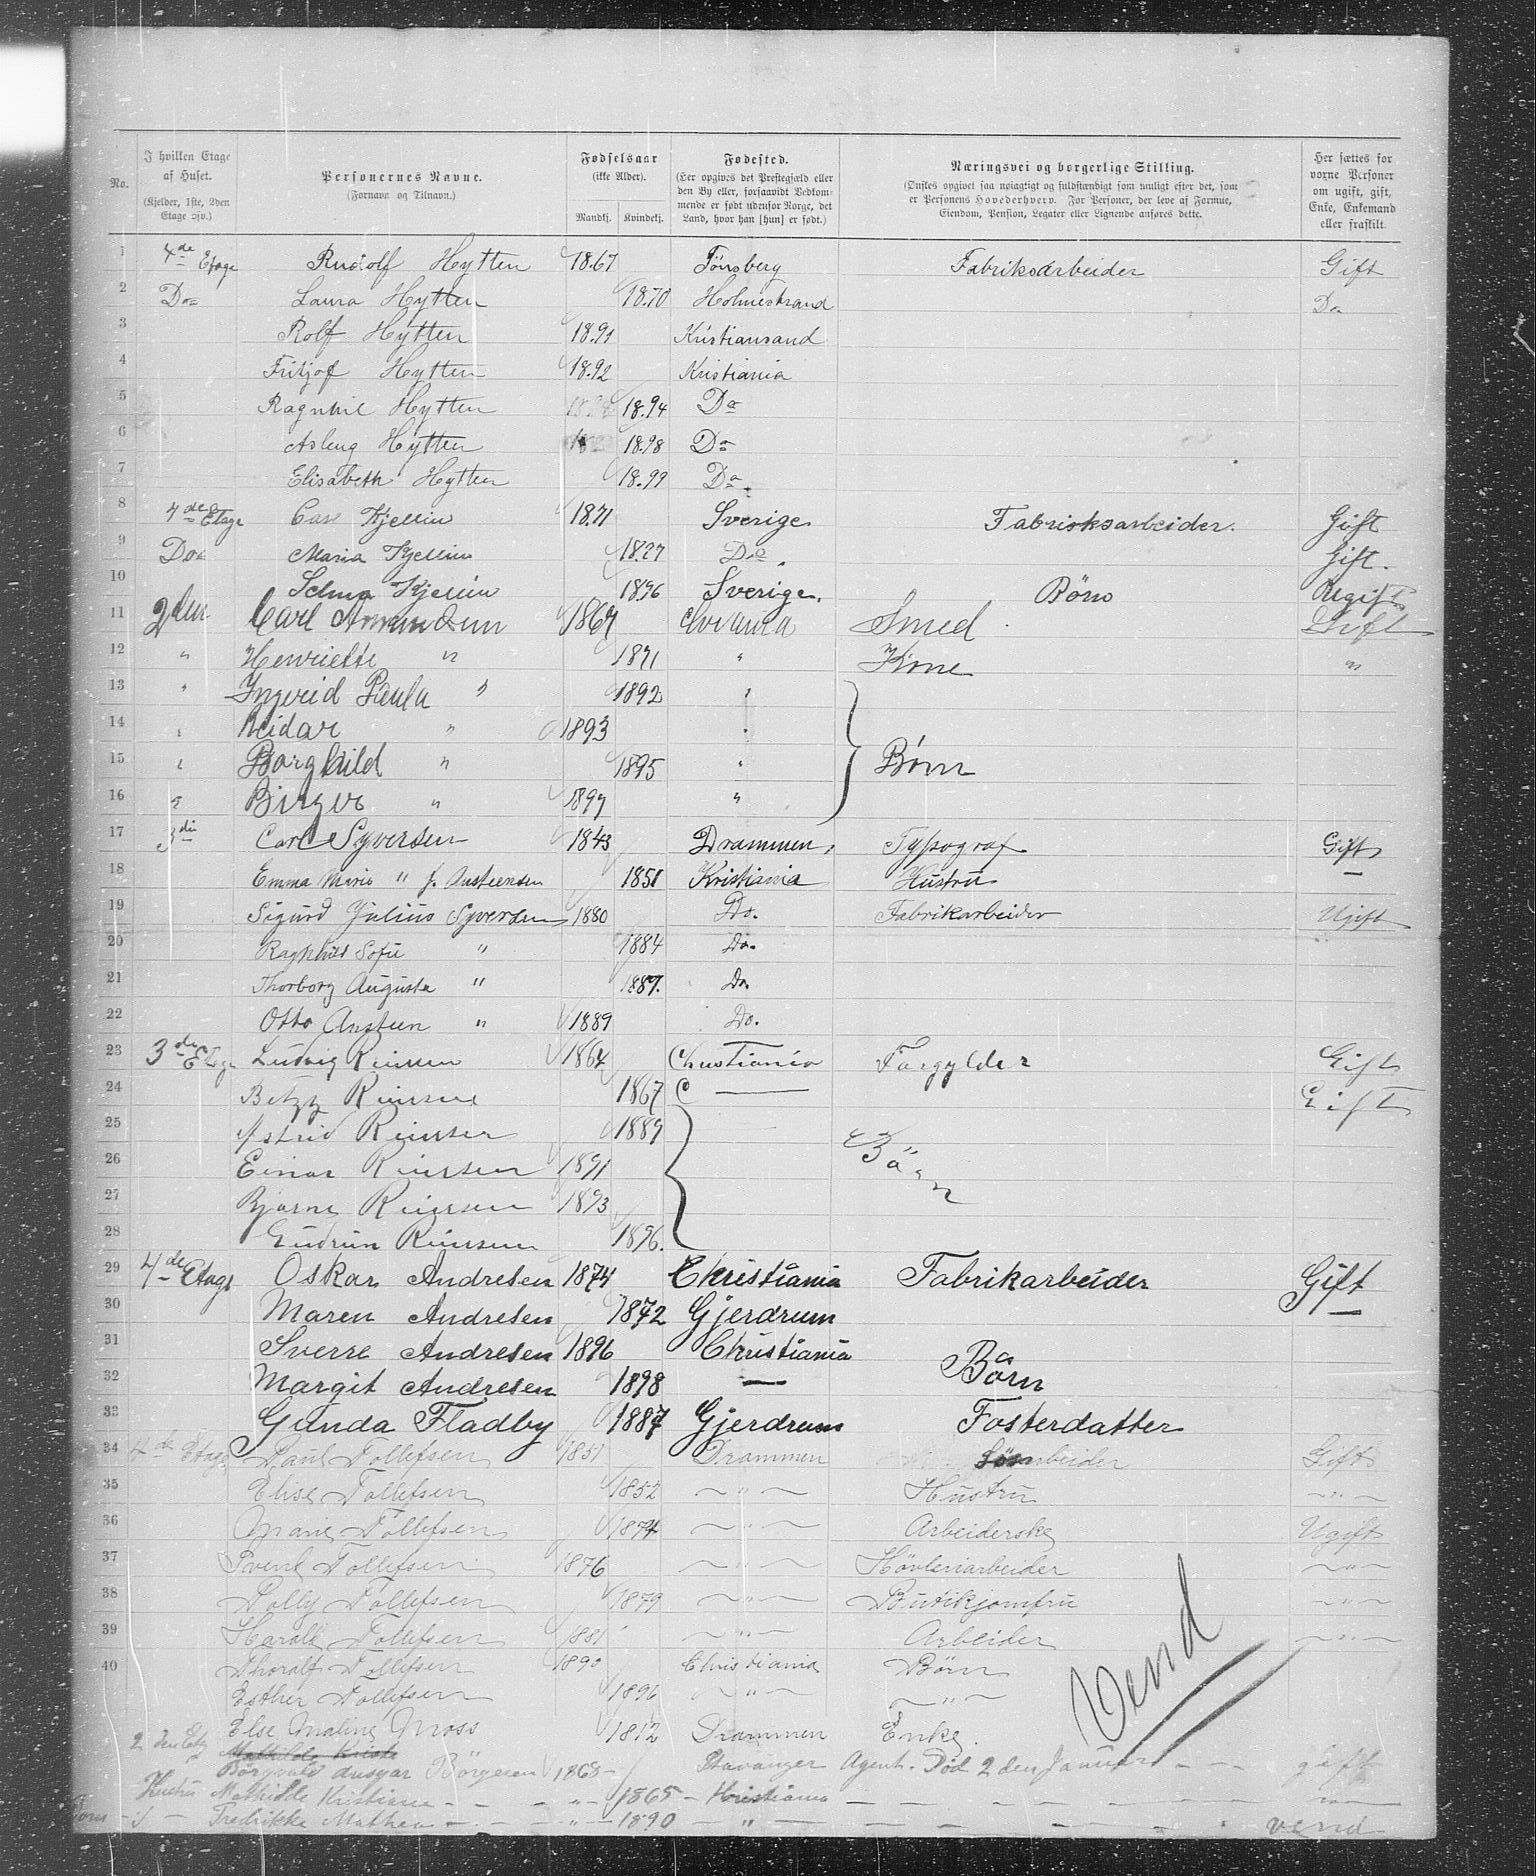 No. I hvilken Etage af Huset. (Kjelder, 1ste, 2den Etage osv.) Personernes Navne. (Fornavn og Tilnavn.) Fødselsaar (ikke Alder). Mandkj. Kvindekj. Fødested. (Her opgives det Prestegjæld eller den By eller, forsaavidt Vedkommende er født udenfor Norge, det Land, hvor han [hun] er født.) Næringsvei og borgerlige Stilling. (Ønskes opgivet saa nøiagtigt og fuldstændigt som muligt efter det, som er Personens Hovederhverv. For Personer, der leve af Formue, Eiendom, Pension, Legater eller Lignende anføres dette. Her sættes for vorne Personer om ugift, gift, Enke, Enkemand eller fraskilt.
1 4de Etage Rudolf Hytten 1867 Tönsberg Fabriksarbeider Gift
2 Do Laura Hytten 18.70 Holmestrand Do
3 Rolf Hytten 18.91 Kristiansand
4 Fritjof Hytten 18.92 Kristiania
5 Ragnhil Hytten 18.94 Do
6 Aslaug Hytten 18.98 Do
7 Elisabeth Hytten 18.99 Do
8 4de Etage Carl Kjellin 18.71 Sverige Fabrisksarbeider. Gift
9 Do Maria Kjellin 18.27 Do. Gift.
10 Selma Kjellin 1896 Sverige. Börn Ugift
11 2den Carl Amundsen 1867 Chr ania Smed Gift
12 " Henriette " 1871 " Kone "
13 " Ingerid Paula " 1892 "
14 " Reidar " 1893 "
15 " Borghild " 1895 " Börn
16 " Birger " 1897 "
17 3die Carl Syversen 1843 Drammen, Typograf Gift
18 Emma Marie " f. Austeensen 1851 Kristiania Hustru —
19 Sigurd Julius Syversen 1880 Do. Fabrikarbeider Ugift
20 Ragnhild Sofie " 1884 Do.
21 Thorborg Augusta " 1887. Do.
22 Otto Austeen " 1889 Do.
23 3de Etage Ludvig Reiersen 1864 Christiania Forgylder Gift
24 Betzy Reiersen 1867 C — Gift
25 Astrid Reiersen 1889
26 Einar Reiersen 1891 Börn
27 Bjarne Reiersen 1893
28 Gudrun Reiersen 1896.
29 4de Etage Oskar Andresen 1874 Christiania Fabrikarbeider Gift
30 Maren Andresen 1872 Gjerdrum —
31 Sverre Andresen 1896 Christiania
32 Margit Andresen 1898 — Börn
33 Gunda Fladby 1887 Gjerdrum Fosterdatter
34 4de Etage Paul Tollefsen 1851 Drammen arbeider Gift
35 Elise Tollefsen 1852 — " — Hustru — " —
36 Marie Tollefsen 1874 — " — Arbeiderske Ugift
37 Svend Tollefsen 1876 — " — Hövleriarbeider — " —
38 Dolly Tollefsen 1879 — " — Butikjomfru — " —
39 Harald Tollefsen 1881 — " — Arbeider — " —
40 Thoralf Tollefsen 1890 Christiania Börn
Esther Tollefsen 1896 — " — — " —
Else Maline Moss 1812 Drammen Enke.
Vend
2 den Etg Mathilde Kristi
Börgvald Ansgar Börgesen 1868 — Stavanger Agent. Död 2 den Januar — — gift
Hustru Mathilde Kristiane — — — " — 1865 — Kristiania — — — — —
Fredrikke Mathea — — — " — 1890 — " — — — — —
vend